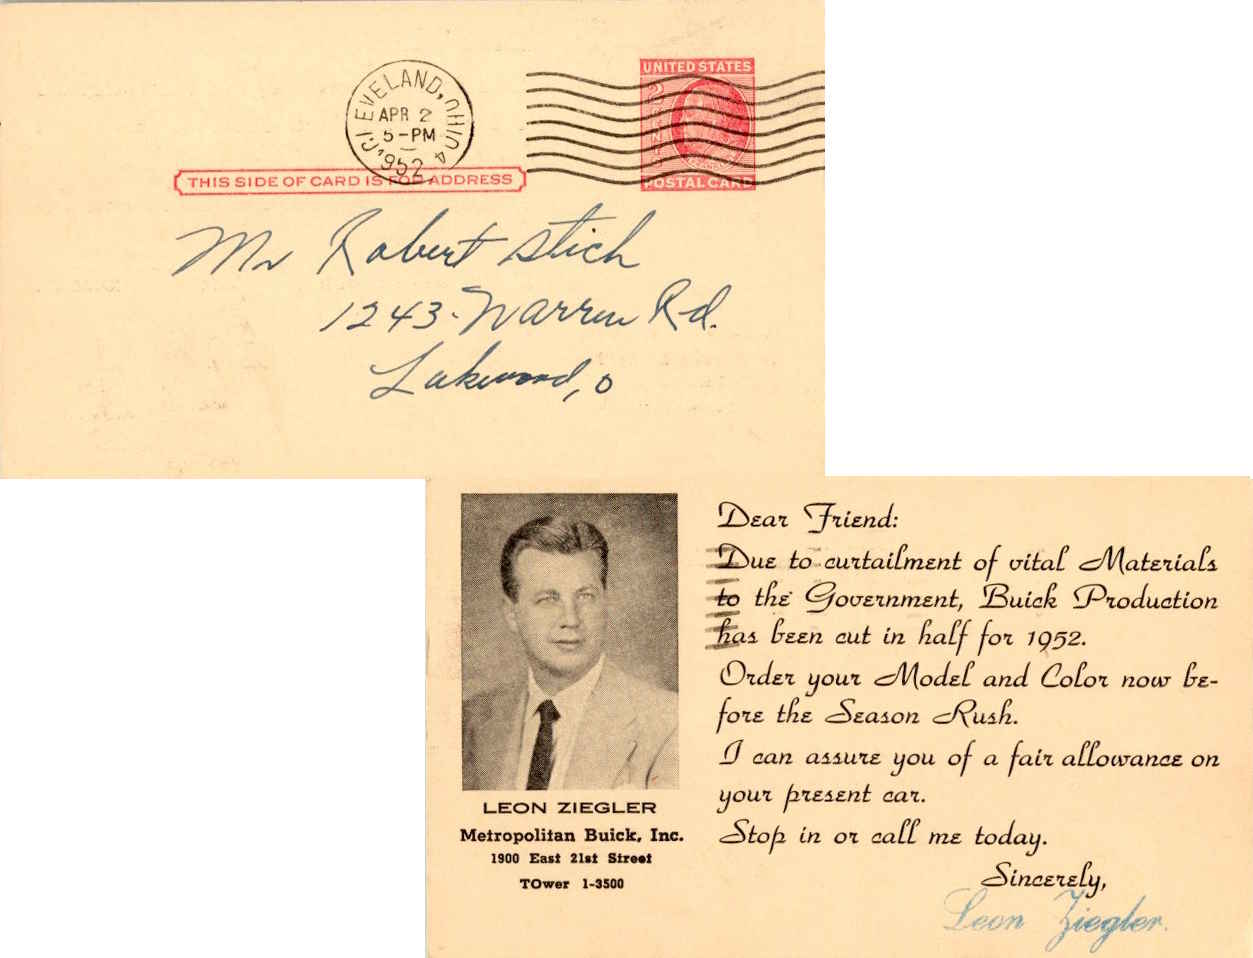 CLEVELAND, OHIO 4
APR 2
5-PM
1952
UNITED STATES
2 CENTS
POSTAL CARD
THIS SIDE OF CARD IS FOR ADDRESS
Mr Robert Stich
1243-Warren Rd.
Lakewood, O
LEON ZIEGLER
Metropolitan Buick, Inc.
1900 East 21st Street
TOwer 1-3500
Dear Friend:
Due to curtailment of vital Materials
to the Government, Buick Production
has been cut in half for 1952.
Order your Model and Color now be-
fore the Season Rush.
I can assure you of a fair allowance on
your present car.
Stop in or call me today.
Sincerely,
Leon Ziegler.